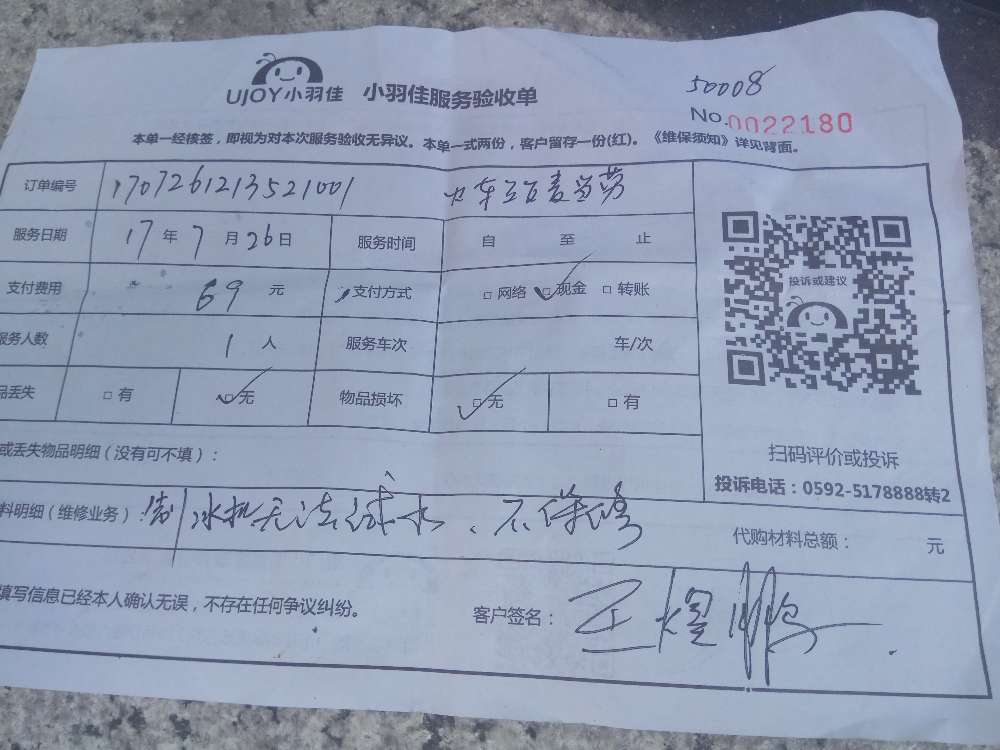 UJOY小羽佳 小羽佳服务验收单
50008
No.0022180
本单一经核签，即视为对本次服务验收无异议。本单一式两份，客户留存一份(红)。《维保须知》详见背面。
订单编号 1707261213521001
服务日期 17 年 7 月 26 日 服务时间 自 至 止
支付费用 69 元 支付方式 □ 网络 □ 现金 □ 转账
服务人数 1 人 服务车次 车/次
品丢失 □ 有 □ 无 物品损坏 □ 无 □ 有
投诉或建议
扫码评价或投诉
投诉电话：0592-5178888转2
或丢失物品明细（没有可不填）：
料明细（维修业务）：制冰机无法试水、不保修
代购材料总额： 元
填写信息已经本人确认无误，不存在任何争议纠纷。
客户签名： 王